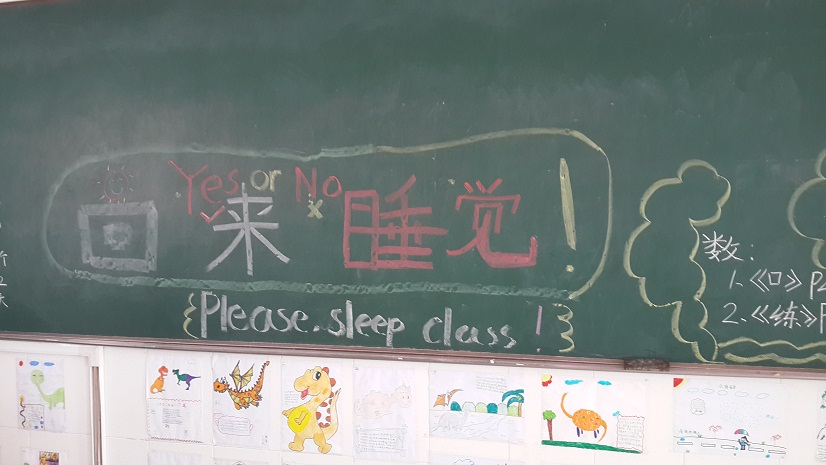 Yes or No
回来睡觉!
{Please.sleep class!}
数:
1.《口》P
2.《练》P